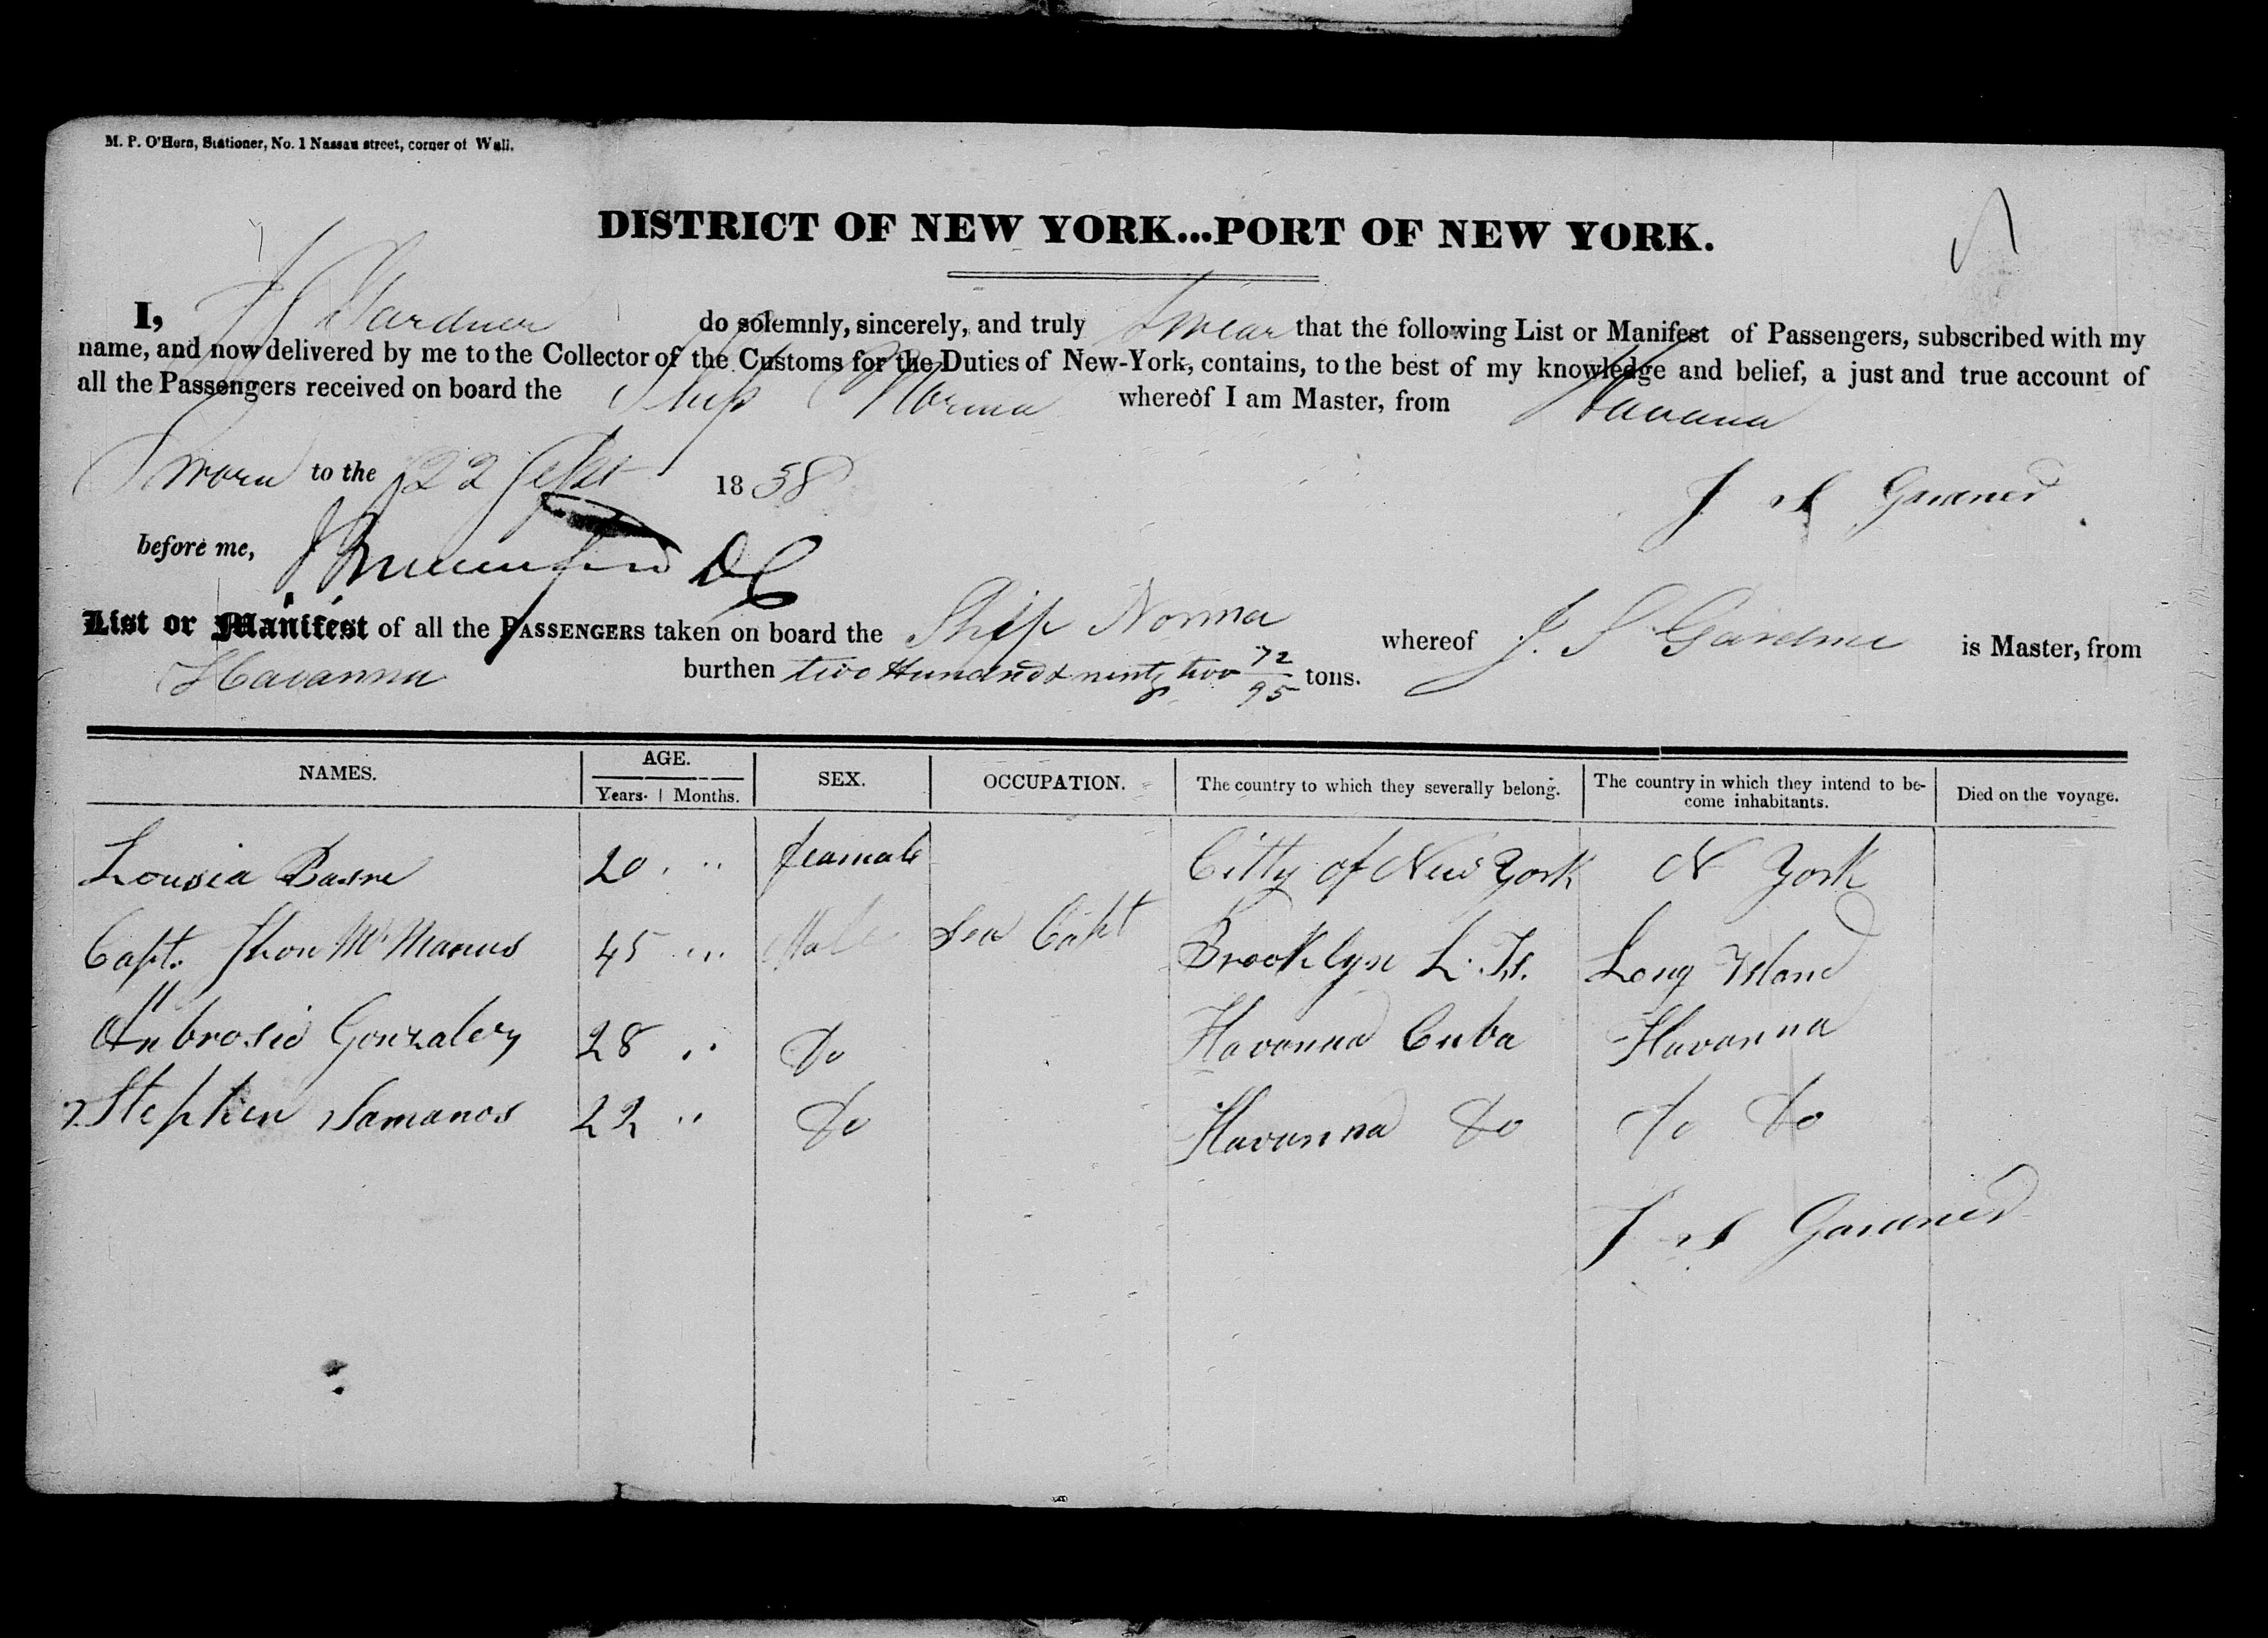 M. P. O'Hern, Stationer, No. 1 Nassau street, corner of Wall.
DISTRICT OF NEW YORK...PORT OF NEW YORK.
I, J S Gardner do solemnly, sincerely, and truly Swear that the following List or Manifest of Passengers, subscribed with my
name, and now delivered by me to the Collector of the Customs for the Duties of New-York, contains, to the best of my knowledge and belief, a just and true account of
all the Passengers received on board the Ship Norma whereof I am Master, from Havana
Sworn to the 22 Sept 1838
J S Gardner
before me, DC
List or Manifest of all the PASSENGERS taken on board the Ship Norma whereof J. S Gardner is Master, from
Havanna burthen two Hundred & ninty two 72/95 tons.
NAMES. AGE. SEX. OCCUPATION. The country to which they severally belong. The country in which they intend to be-
come inhabitants. Died on the voyage.
Years. Months.
Lousia 20 " feamale Citty of New York N York
Capt. Jhon Mc Manus 45 " Male Sea Capt Brooklyn L. Is. Long Island
Ambrosio Gonzalez 28 " Do Havanna Cuba Havanna
Stephen Samanos 22 " Do Havanna Do Do Do
J S Gardner